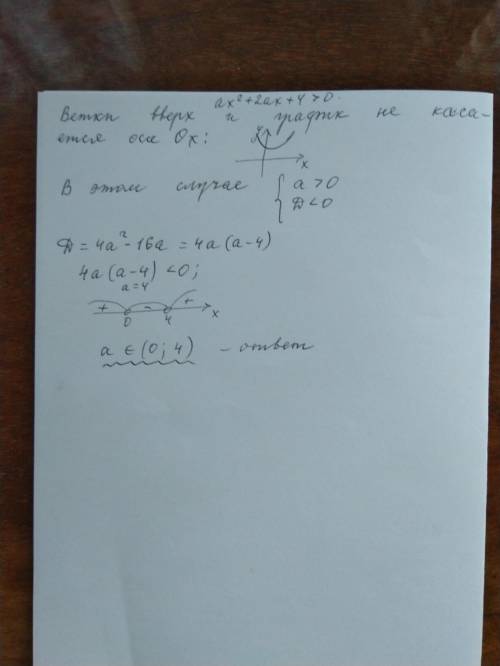 ax²+2ax+4>0.
Ветки вверх и график не каса-
ется оси Ox:
y
x
В этом случае { a > 0
D < 0
D = 4a² - 16a = 4a (a-4)
4a (a-4) < 0;
a=4
+ - +
0 4 x
a ∈ (0; 4) - ответ